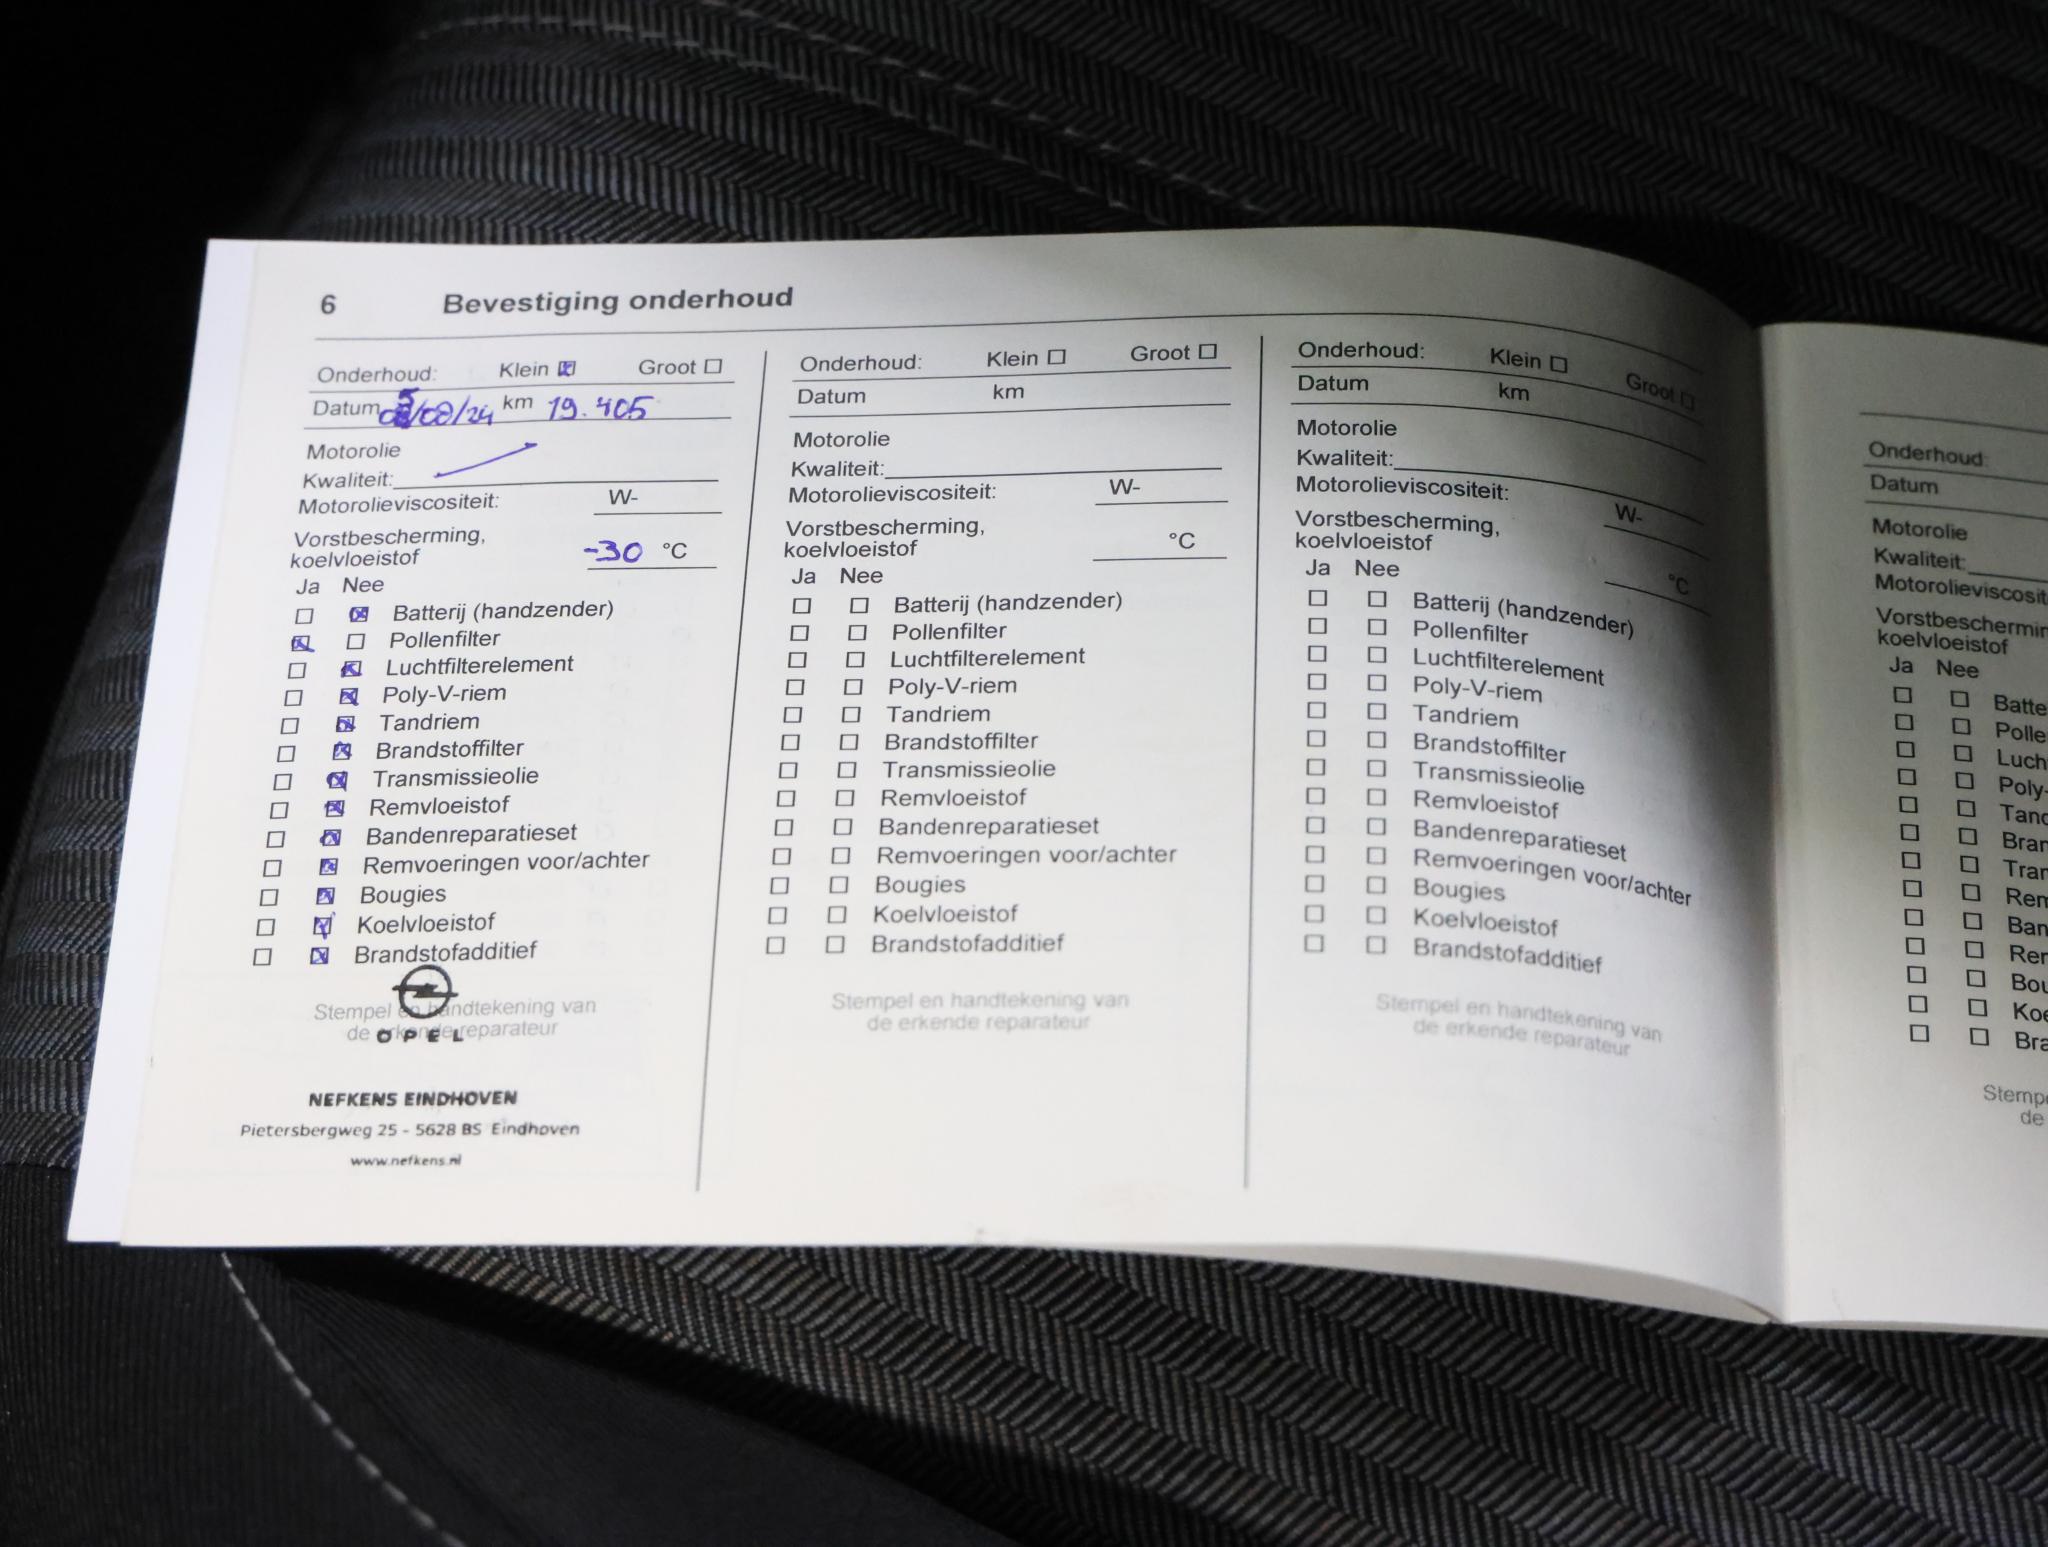 6 Bevestiging onderhoud
Onderhoud: Klein Groot
Datum 05/08/24 km 19.405
Motorolie
Kwaliteit:
Motorolieviscositeit: W-
Vorstbescherming,
koelvloeistof -30 °C
Ja Nee
Batterij (handzender)
Pollenfilter
Luchtfilterelement
Poly-V-riem
Tandriem
Brandstoffilter
Transmissieolie
Remvloeistof
Bandenreparatieset
Remvoeringen voor/achter
Bougies
Koelvloeistof
Brandstofadditief
Stempel en handtekening van
de erkende reparateur
OPEL
NEFKENS EINDHOVEN
Pietersbergweg 25 - 5628 BS Eindhoven
www.nefkens.nl
Onderhoud: Klein Groot
Datum km
Motorolie
Kwaliteit:
Motorolieviscositeit: W-
Vorstbescherming,
koelvloeistof °C
Ja Nee
Batterij (handzender)
Pollenfilter
Luchtfilterelement
Poly-V-riem
Tandriem
Brandstoffilter
Transmissieolie
Remvloeistof
Bandenreparatieset
Remvoeringen voor/achter
Bougies
Koelvloeistof
Brandstofadditief
Stempel en handtekening van
de erkende reparateur
Onderhoud: Klein Groot
Datum km
Motorolie
Kwaliteit:
Motorolieviscositeit: W-
Vorstbescherming,
koelvloeistof °C
Ja Nee
Batterij (handzender)
Pollenfilter
Luchtfilterelement
Poly-V-riem
Tandriem
Brandstoffilter
Transmissieolie
Remvloeistof
Bandenreparatieset
Remvoeringen voor/achter
Bougies
Koelvloeistof
Brandstofadditief
Stempel en handtekening van
de erkende reparateur
Onderhoud:
Datum
Motorolie
Kwaliteit:
Motorolieviscosit
Vorstbeschermin
koelvloeistof
Ja Nee
Batte
Polle
Luch
Poly-
Tand
Bran
Tran
Rem
Ban
Rer
Bou
Koe
Bra
Stemp
de